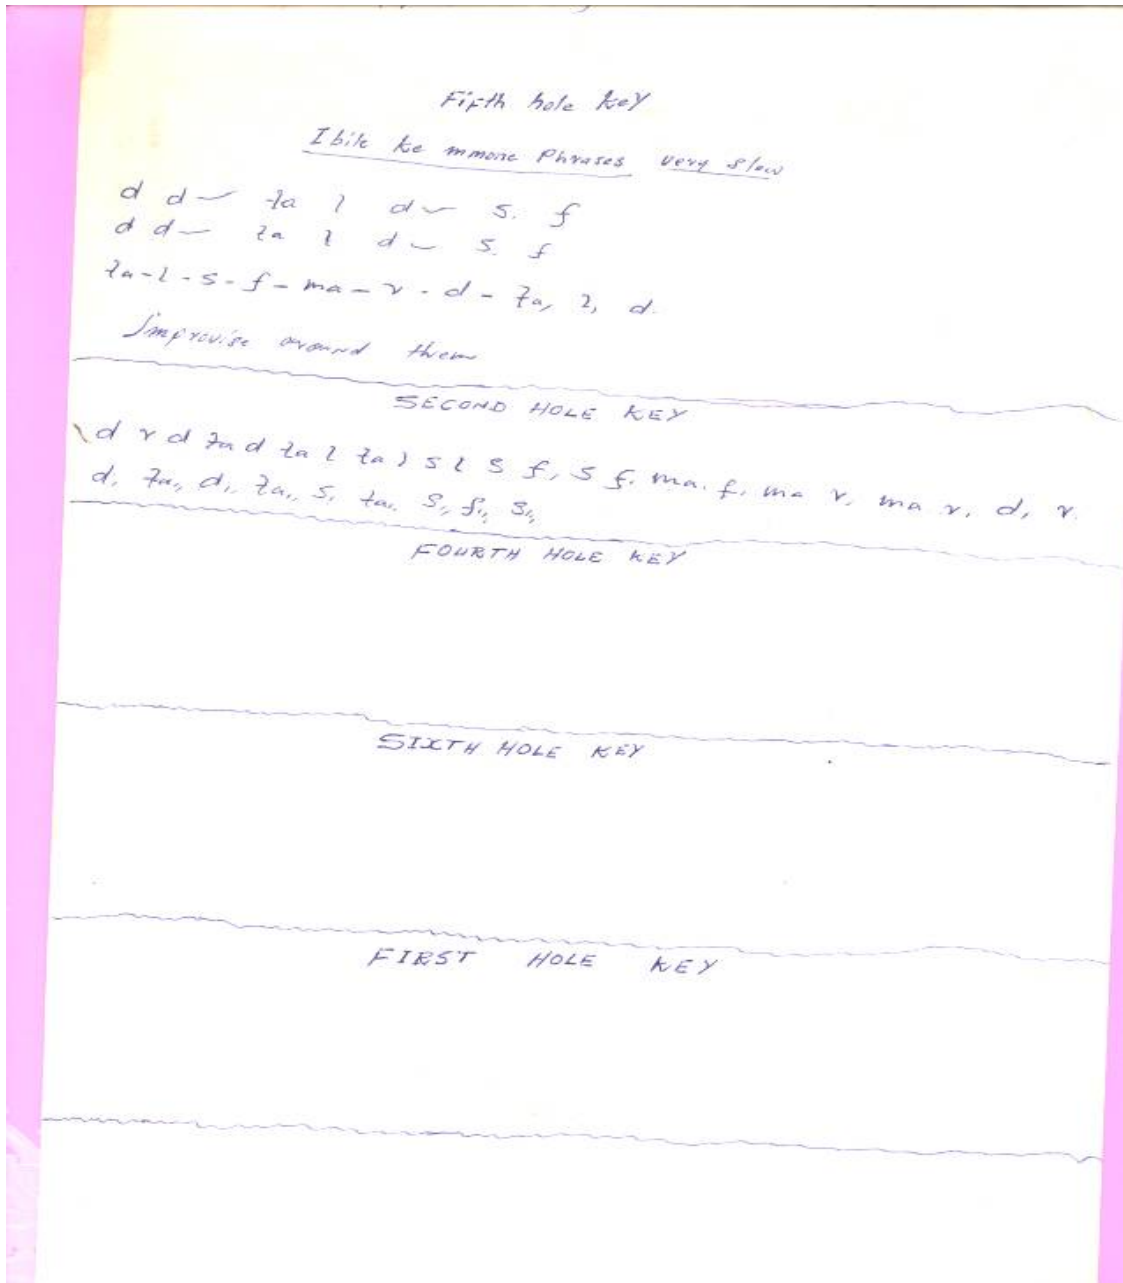 Fifth hole key
Ibile ke mmone Phrases very slow
d d— ta l d— s. f
d d— ta l d— s. f
ta-l-s-f-ma-r-d-ta, l, d.
Improvise around them
SECOND HOLE KEY
d r d ta d ta l ta l s l s f, s f, ma. f, ma r, ma r, d, r.
d, ta,, d, ta,, s, ta,, s,, f,, s,,
FOURTH HOLE KEY
SIXTH HOLE KEY
FIRST HOLE KEY